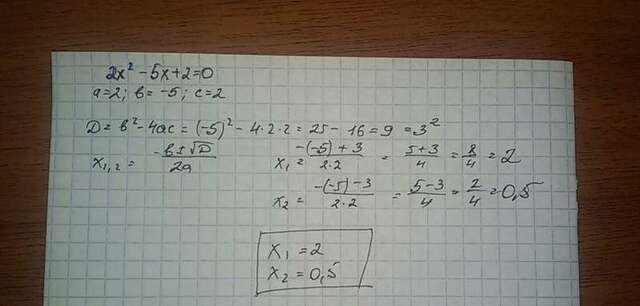 2x² - 5x + 2 = 0
a = 2; b = -5; c = 2
D = b² - 4ac = (-5)² - 4·2·2 = 25 - 16 = 9 = 3²
x₁,₂ = (-b ± √D)/2a    x₁ = (-(-5) + 3)/(2·2) = (5+3)/4 = 8/4 = 2
x₂ = (-(-5) - 3)/(2·2) = (5-3)/4 = 2/4 = 0,5
x₁ = 2
x₂ = 0,5